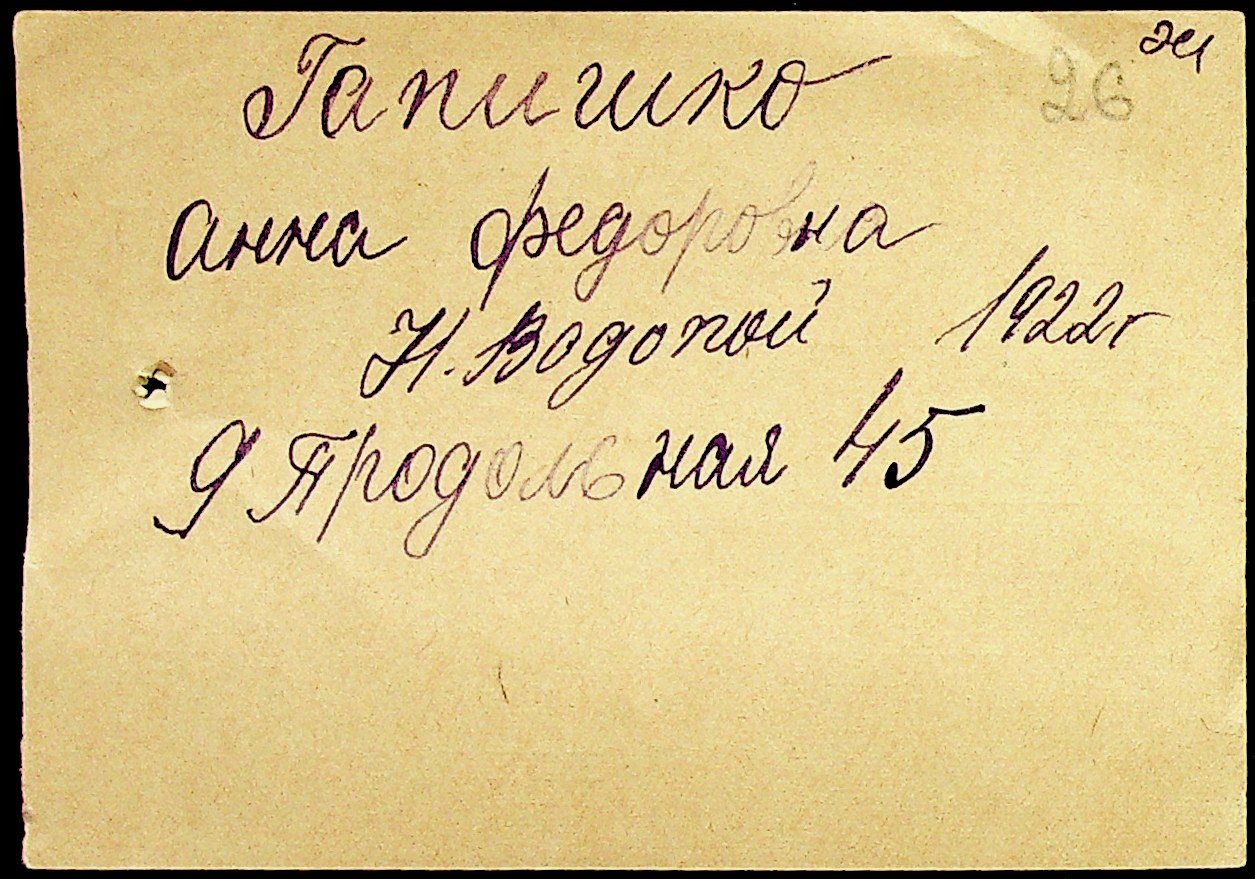 26
Гапишко
Анна Федоровна
Н. Водопой 1922г
9 Продольная 45